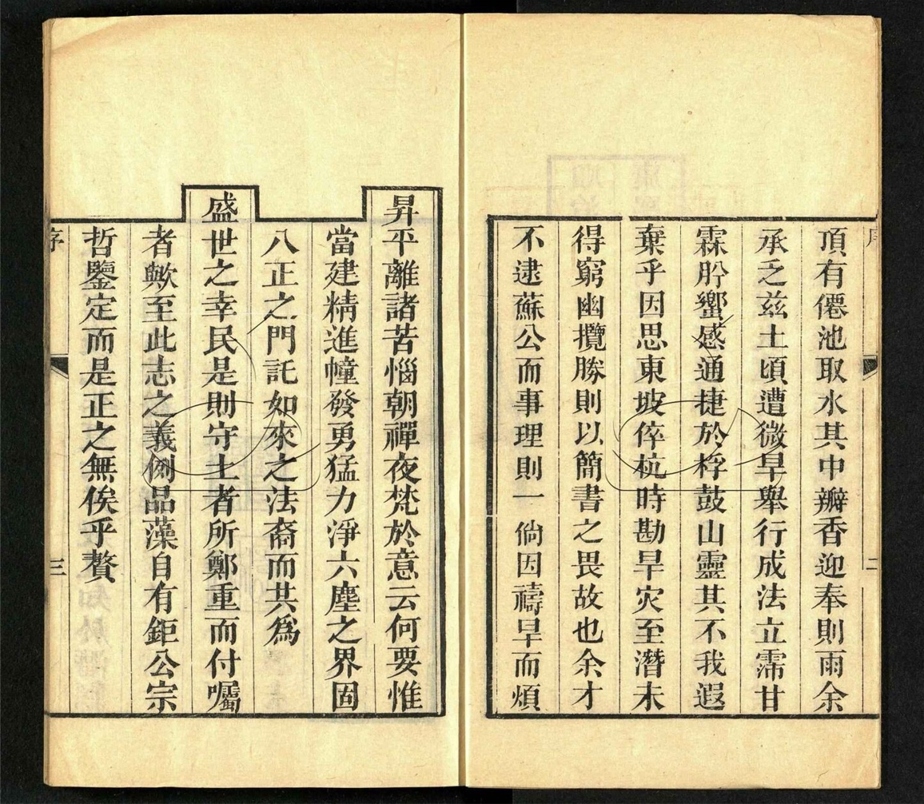 頂有僊池取水其中瓣香迎奉則雨余
承乏兹土頃遭微旱舉行成法立霈甘
霖肸蠁感通捷於桴鼓山靈其不我遐
棄乎因思東坡倅杭時勘旱灾至潛未
得窮幽攬勝則以簡書之畏故也余才
不逮蘇公而事理則一倘因禱旱而煩
二
昇平離諸苦惱朝禪夜梵於意云何要惟
當建精進幢發勇猛力淨六塵之界固
八正之門託如來之法裔而共為
盛世之幸民是則守土者所鄭重而付囑
者歟至此志之義例品藻自有鉅公宗
哲鑒定而是正之無俟乎贅
序
三